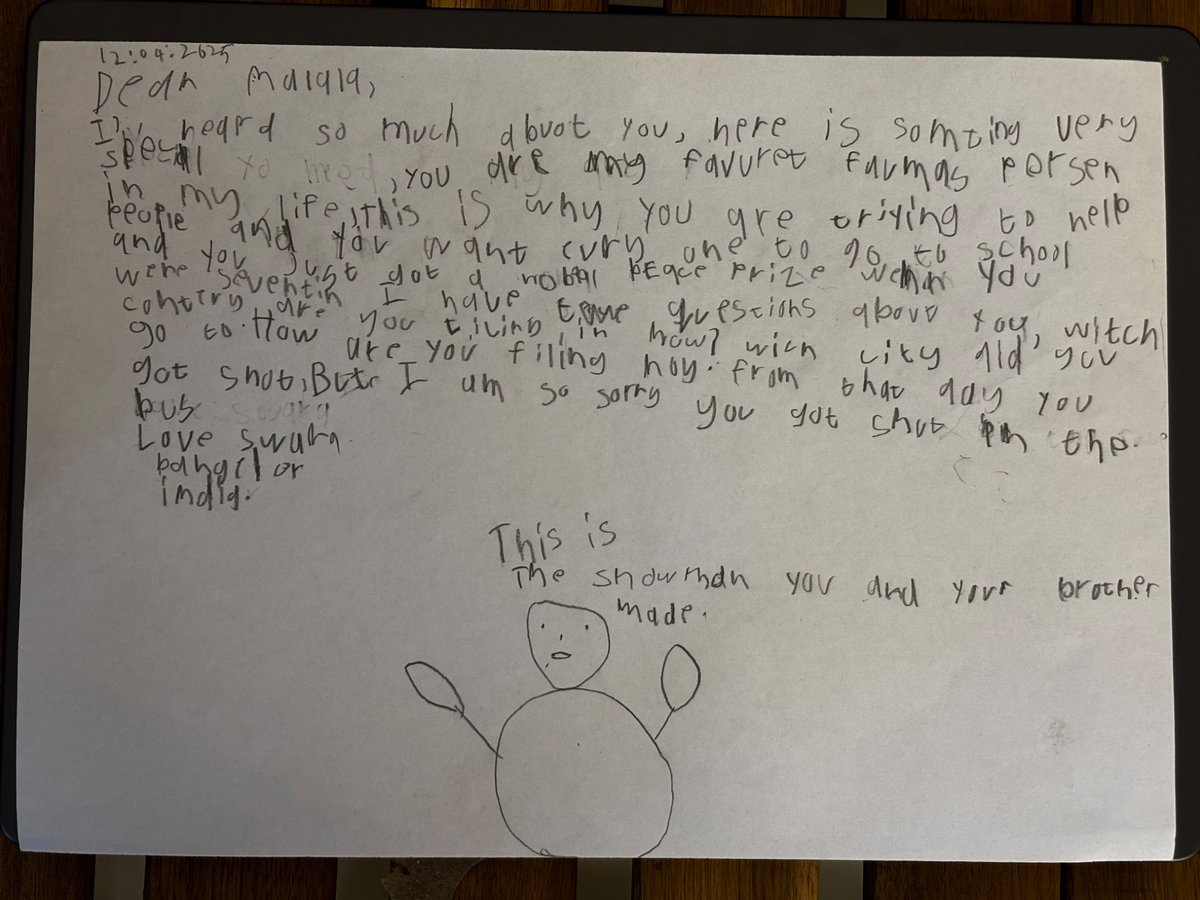 12:04:2025
Dear Malala,
I'v heard so much abuot you, here is somting very
specal, you are my favuret faumas persen
in my life, this is why you are triying to help
people and you want evry one to go to school
and you just got a nobal peace prize wehn you
were seventin I have three questions about you, witch
contiry are you living in now? wich city did you
go to. How are you filing noy. from that day you
got shot, But I am so sorry you got shot in the
bus
Love swara
bangelor
india.
This is
The snowman you and your brother
made.